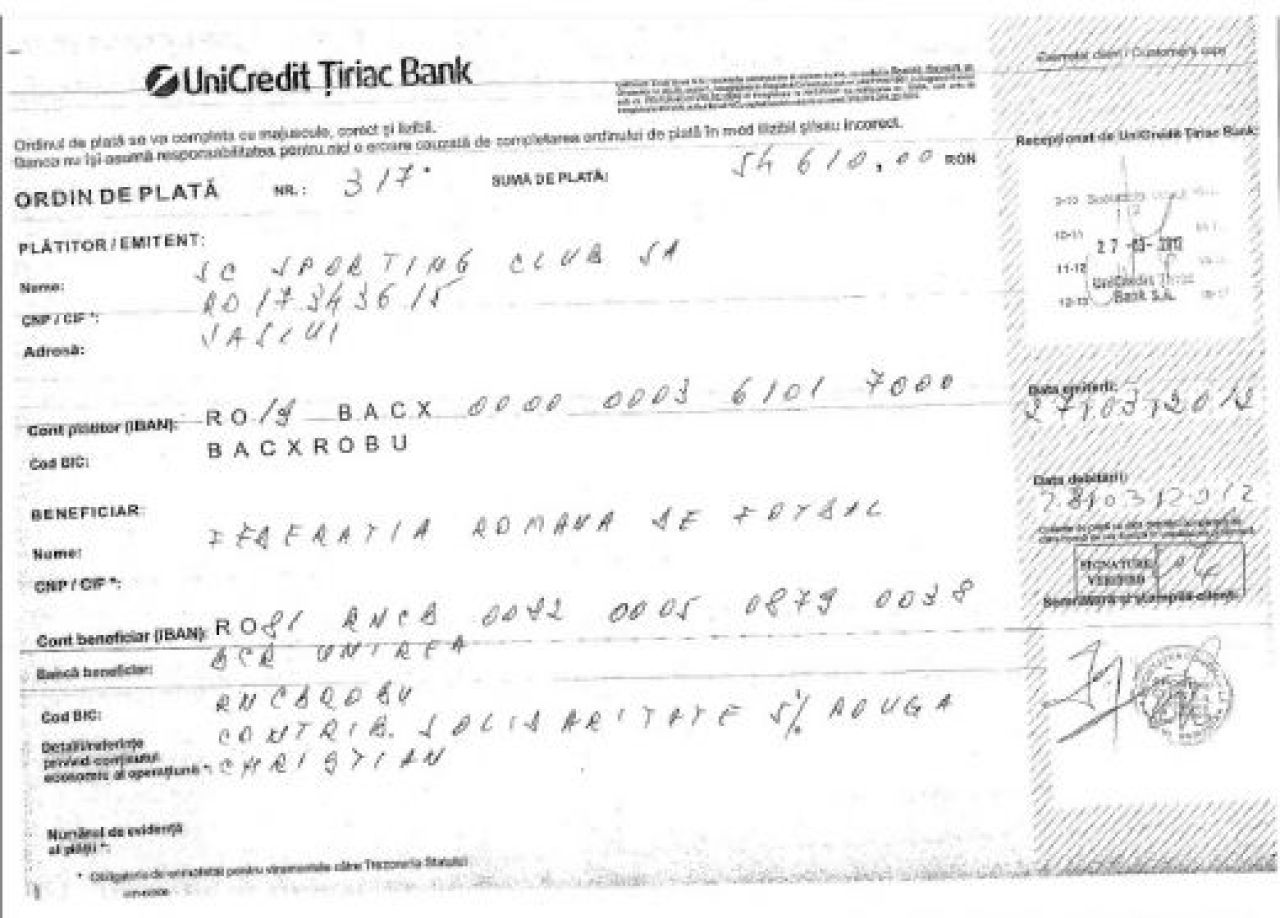 UniCredit Țiriac Bank
Exemplar client / Customer's copy
Ordinul de plată se va completa cu majuscule, corect și lizibil.
Banca nu își asumă responsabilitatea pentru nici o eroare cauzată de completarea ordinului de plată în mod ilizibil și/sau incorect.
Recepționat de UniCredit Țiriac Bank:
ORDIN DE PLATĂ NR.: 317 SUMA DE PLATĂ: 54 610,00 RON
PLĂTITOR / EMITENT:
Nume: SC SPORTING CLUB SA
CNP / CIF *: RO 17343615
Adresă: VASLUI
27-03-2012
UniCredit Țiriac
Bank S.A.
Cont plătitor (IBAN): RO19 BACX 0000 0003 6101 7000
Cod BIC: BACXROBU
Data emiterii:
27/03/2012
BENEFICIAR:
Nume: FEDERATIA ROMANA DE FOTBAL
CNP / CIF *:
Data debitării:
28/03/2012
SIGNATURE
VERIFIED
Semnătura și ștampila client:
Cont beneficiar (IBAN): RO81 RNCB 0082 0005 0879 0038
Bancă beneficiar: BCR UNIREA
Cod BIC: RNCBROBU
Detalii/referințe
privind conținutul
economic al operațiunii *: CONTRIB. SOLIDARITATE 5% ADUGA
CHRISTIAN
Numărul de evidență
al plății *:
* Obligatoriu de completat pentru viramentele către Trezoreria Statului